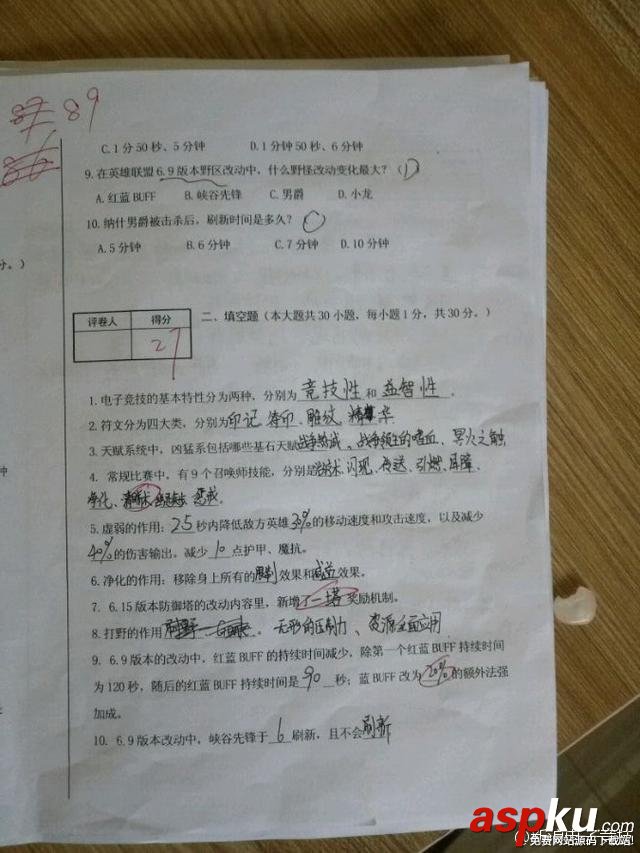 89
C.1分50秒、5分钟 D.1分钟50秒、6分钟
9.在英雄联盟6.9版本野区改动中，什么野怪改动变化最大？（D）
A.红蓝BUFF B.峡谷先锋 C.男爵 D.小龙
10.纳什男爵被击杀后，刷新时间是多久？（ ）
A.5分钟 B.6分钟 C.7分钟 D.10分钟
分。）
评卷人 得分
27
二、填空题（本大题共30小题，每小题1分，共30分。）
1.电子竞技的基本特性分为两种，分别为 竞技性 和 益智性 。
2.符文分为四大类，分别为印记、符印、雕纹、精华
3.天赋系统中，凶猛系包括哪些基石天赋战争热诚、战争领主的嗜血、冥火之触
4. 常规比赛中，有9个召唤师技能，分别是治疗术、闪现、传送、引燃、屏障、
钟
净化、清晰术、惩戒
5.虚弱的作用：2.5秒内降低敌方英雄30%的移动速度和攻击速度，以及减少
40%的伤害输出。减少10点护甲、魔抗。
6.净化的作用：移除身上所有的限制效果和减益效果。
7. 6.15版本防御塔的改动内容里，新增了一塔奖励机制。
8.打野的作用 。无形的压制力、资源全面应用
9. 6.9版本的改动中，红蓝BUFF的持续时间减少，除第一个红蓝BUFF持续时间
为120秒，随后的红蓝BUFF持续时间是90秒；蓝BUFF改为20%的额外法强
加成。
10. 6.9版本改动中，峡谷先锋于 6 刷新，且不会刷新
aspku.com
免费网站源码下载站!